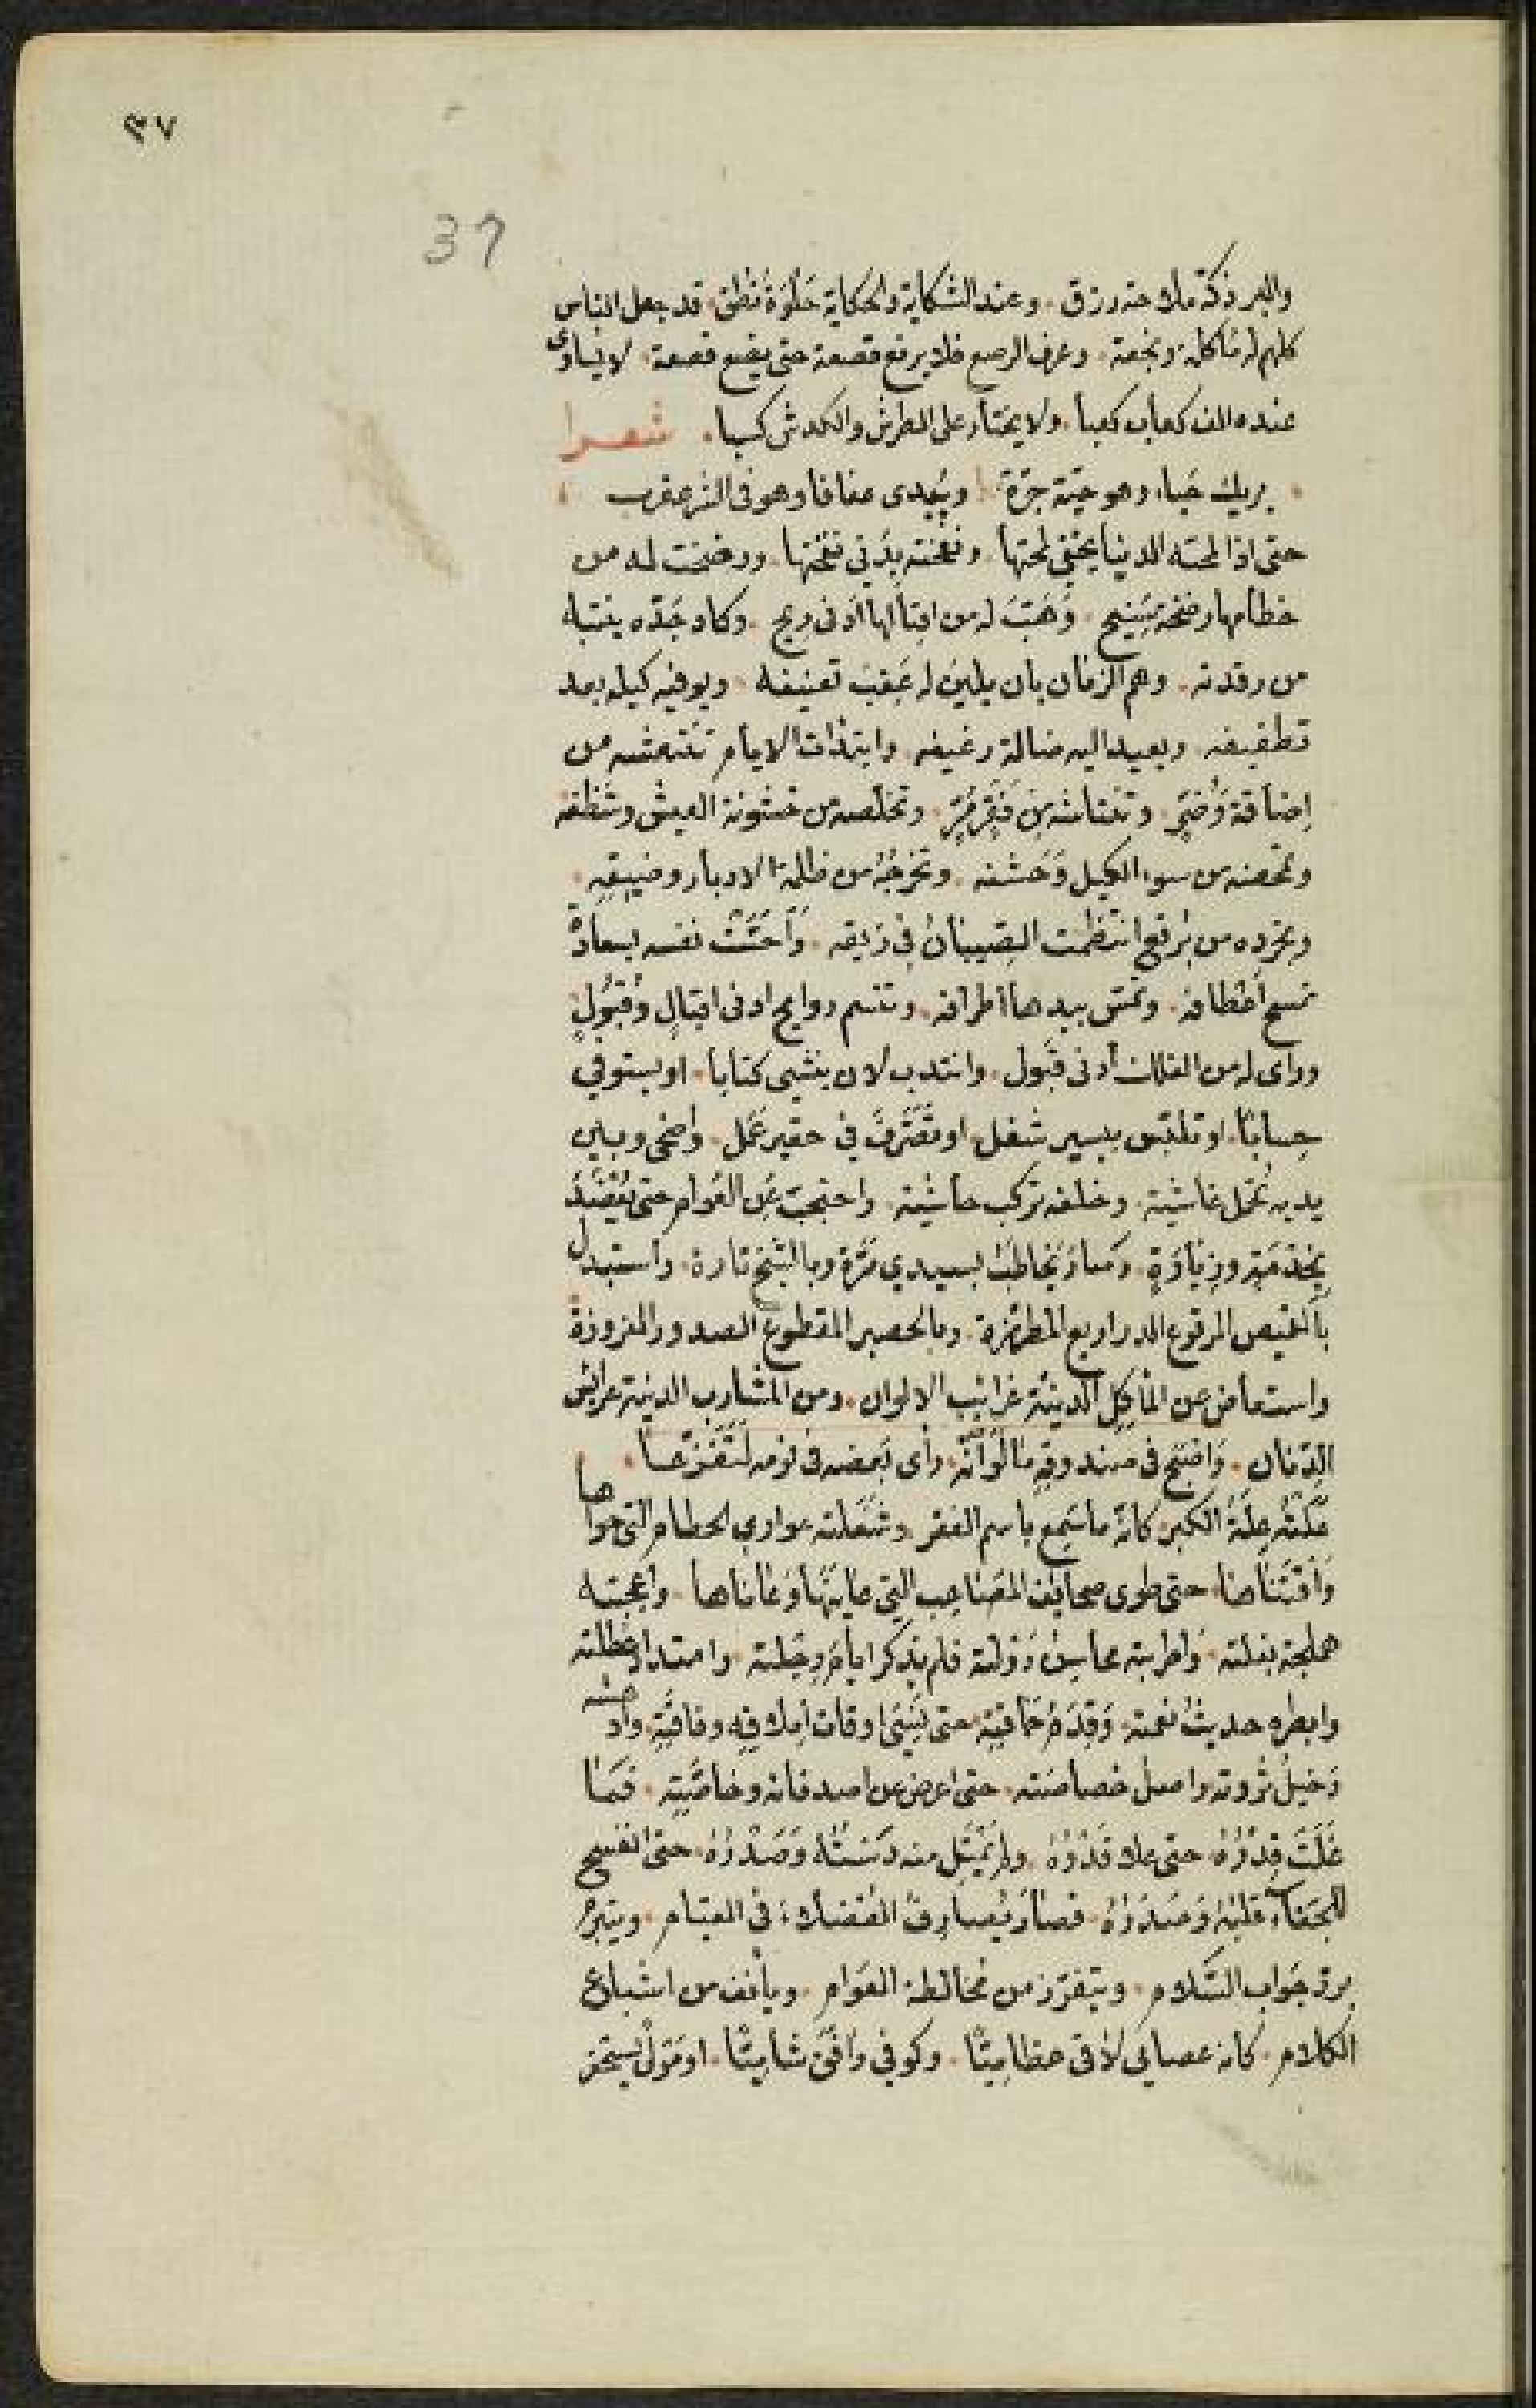 ٣٧
37
وعند الشكاية والحكاية حلاوة نطق. قد جعل الناس
كلهم له مأكلة ونجعة. وعرف الرصع فلا يرفع قصعة حتى يضع قصعة. لا يساوى
عنده الف كعاب كعبا. ولا يختار على الطرش والكدش كسبا. شعرا
يريك حباء وهو حية جرة ويبدى عفافا وهو فى الشر عقرب
حتى اذا لمحته الدنيا بخفى لمحتها. ونفحته بدنى نفحتها. ورضخت له من
حطامها رضخة وهبت له من اقبالها ادنى ريح. وكاد جده ينتبه
من رقدته. وهم الزمان بان يلين له عقب تعنيفه. ويوفيه كيله بعد
تطفيفه. ويعيد اليه ضالة رغيفه. وابتدأت الايام تنعشه من
إضاقة وضر. وتنتاشه من فقر مر. وتخلصه من خشونة العيش وشظفه
وتحصنه من سوء الكيل وحشفه. وتخرجه من ظلمة الادبار وضيقه.
وتجرده من برقع انتظمت الصيبان فى زيقه. وأحست نفسه بسعادة
تمسح أعطافه. وتمس بيدها أطرافه. وتنسم روايح ادنى اقبال وقبول
وراى له من الفلك أدنى قبول. وانتدب لان ينشى كتابا. او يستوفي
حسابا. او تلبس بيسير شغل. او تصرف في حقير عمل. وأضحى وبين
يديه تحمل غاشية. وخلفه تركب حاشية. واحتجب عن العوام حتى يقصد
بخدمة وزيارة. وصار يخاطب بسيدي مرة وبالشيخ تارة. واستبدل
بالقميص المرقوع الدراريع المطرزة. وبالحصير المقطوع الصدور المفروزة
واستعاض عن المآكل الدنية غرايب الالوان. ومن المشارب الدنية عرائس
الدنان. واصبح فى صندوقه ما لو أنه رأى بعضه فى نومه لتفزعا.
ملكته علة الكبر كأنه ما سمع باسم الفقر. وشغلته عوارى الحطام التى حواها
واقتناها. حتى طوى صحايف المصاعب التى عاينها وعاناها. وأعجبته
هملجة بغلته. وأطربته محاسن دولته فلم يذكر ايام رجلته. وامتداد عطلته
وابطره حديث نعمته وقدم حماقته حتى نسى اوقات إملاقه وفاقته. وأدهشه
دخيل ثروته واصل خصاصته. حتى اعرض عن اصدقائه وخاصته. فما
غلت قدره حتى علا قدره. ولم يمتل منه دسته وصدره. حتى انفسح
للجفاء قلبه وصدره. فصار يصارف الفضلاء فى القيام. ويتبرم
برد جواب السلام. ويتقزز من مخالطة العوام. ويأنف من اشباع
الكلام. كأنه عصامى لاقى عظاميا. وكوفى وافق شاميا.